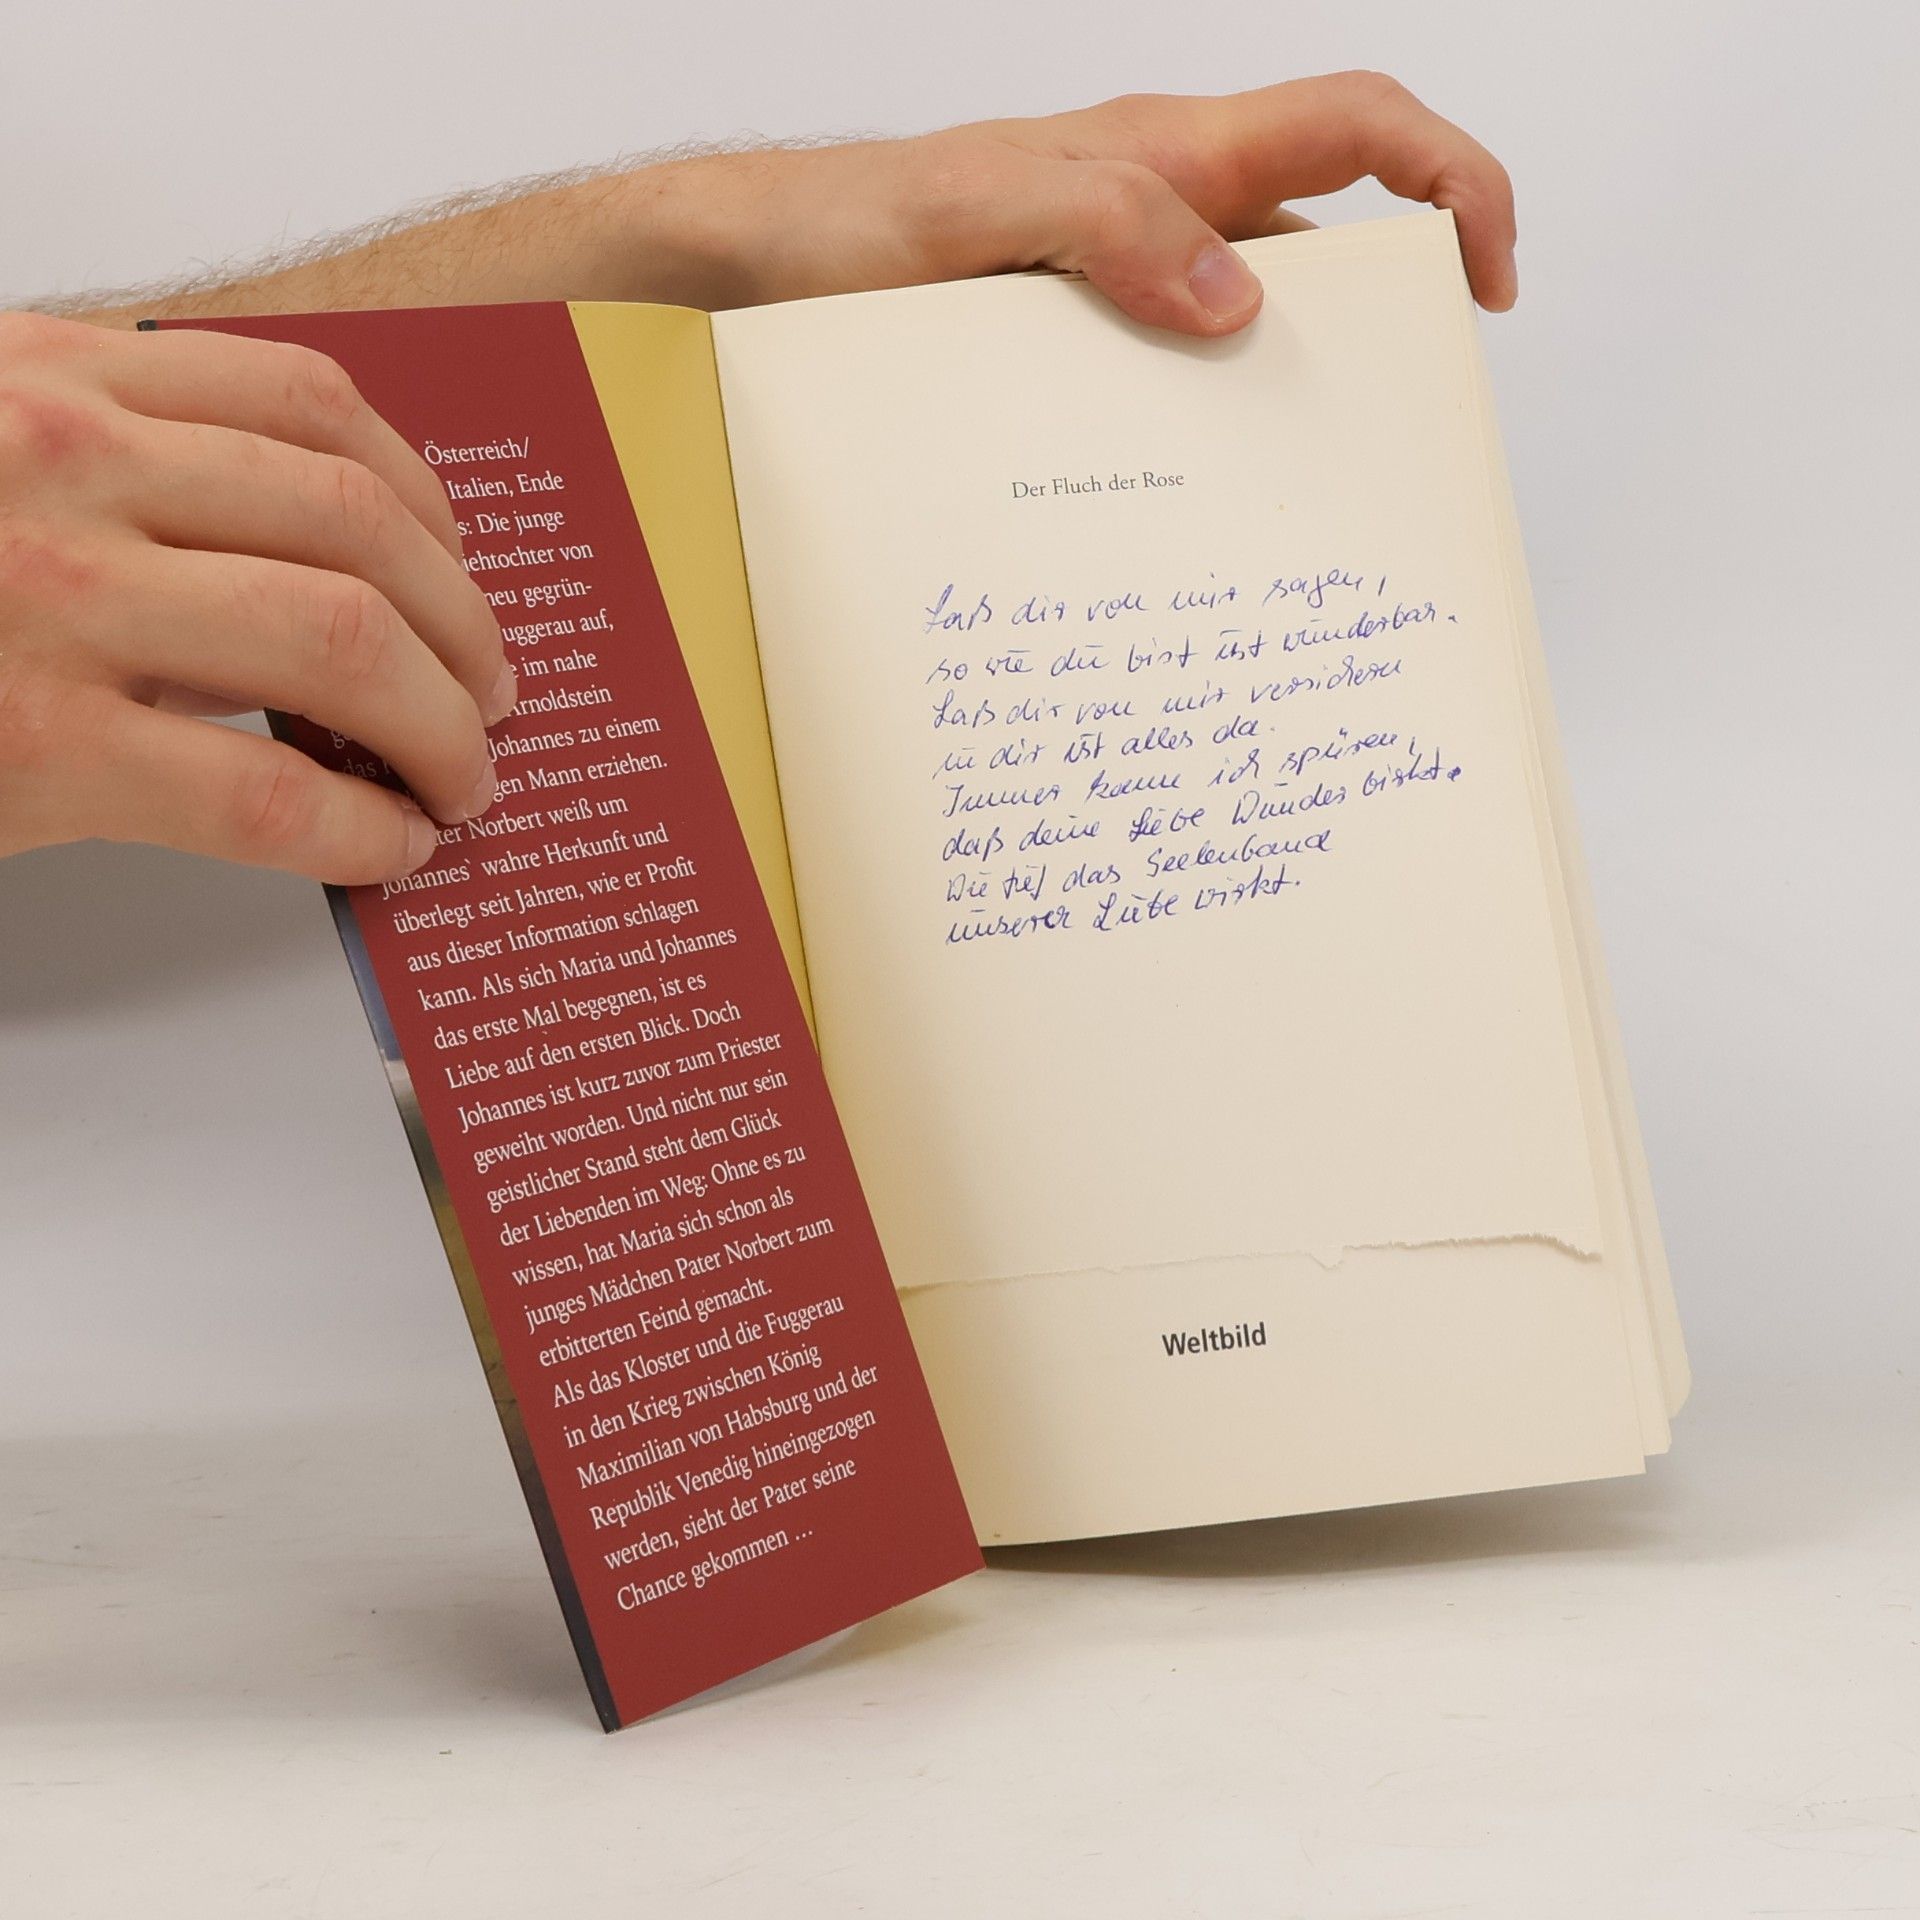 Österreich/
Italien, Ende
s: Die junge
iehtochter von
neu gegrün-
uggerau auf,
e im nahe
Arnoldstein
Johannes zu einem
gen Mann erziehen.
ter Norbert weiß um
Johannes` wahre Herkunft und
überlegt seit Jahren, wie er Profit
aus dieser Information schlagen
kann. Als sich Maria und Johannes
das erste Mal begegnen, ist es
Liebe auf den ersten Blick. Doch
Johannes ist kurz zuvor zum Priester
geweiht worden. Und nicht nur sein
geistlicher Stand steht dem Glück
der Liebenden im Weg: Ohne es zu
wissen, hat Maria sich schon als
junges Mädchen Pater Norbert zum
erbitterten Feind gemacht.
Als das Kloster und die Fuggerau
in den Krieg zwischen König
Maximilian von Habsburg und der
Republik Venedig hineingezogen
werden, sieht der Pater seine
Chance gekommen ...
Der Fluch der Rose
Laß dir von mir sagen,
so wie du bist ist wunderbar.
Laß dir von mir versichern
in dir ist alles da.
Immer kann ich spüren,
daß deine Liebe Wunder birkt.
Wie tief das Seelenband
unserer Liebe wirkt.
Weltbild